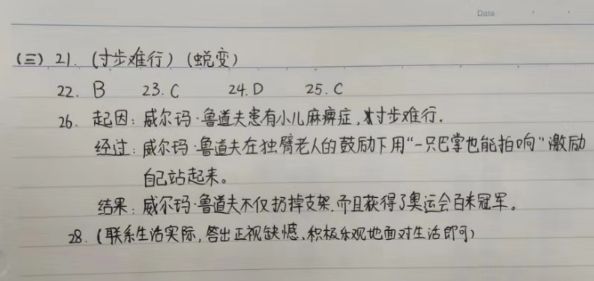 Date
(三) 21. (寸步难行) (蜕变)
22. B 23. C 24. D 25. C
26. 起因:威尔玛·鲁道夫患有小儿麻痹症,寸步难行。
经过:威尔玛·鲁道夫在独臂老人的鼓励下用“一只巴掌也能拍响”激励
自己站起来。
结果:威尔玛·鲁道夫不仅扔掉支架,而且获得了奥运会百米冠军。
28. (联系生活实际,答出正视缺憾、积极乐观地面对生活即可)